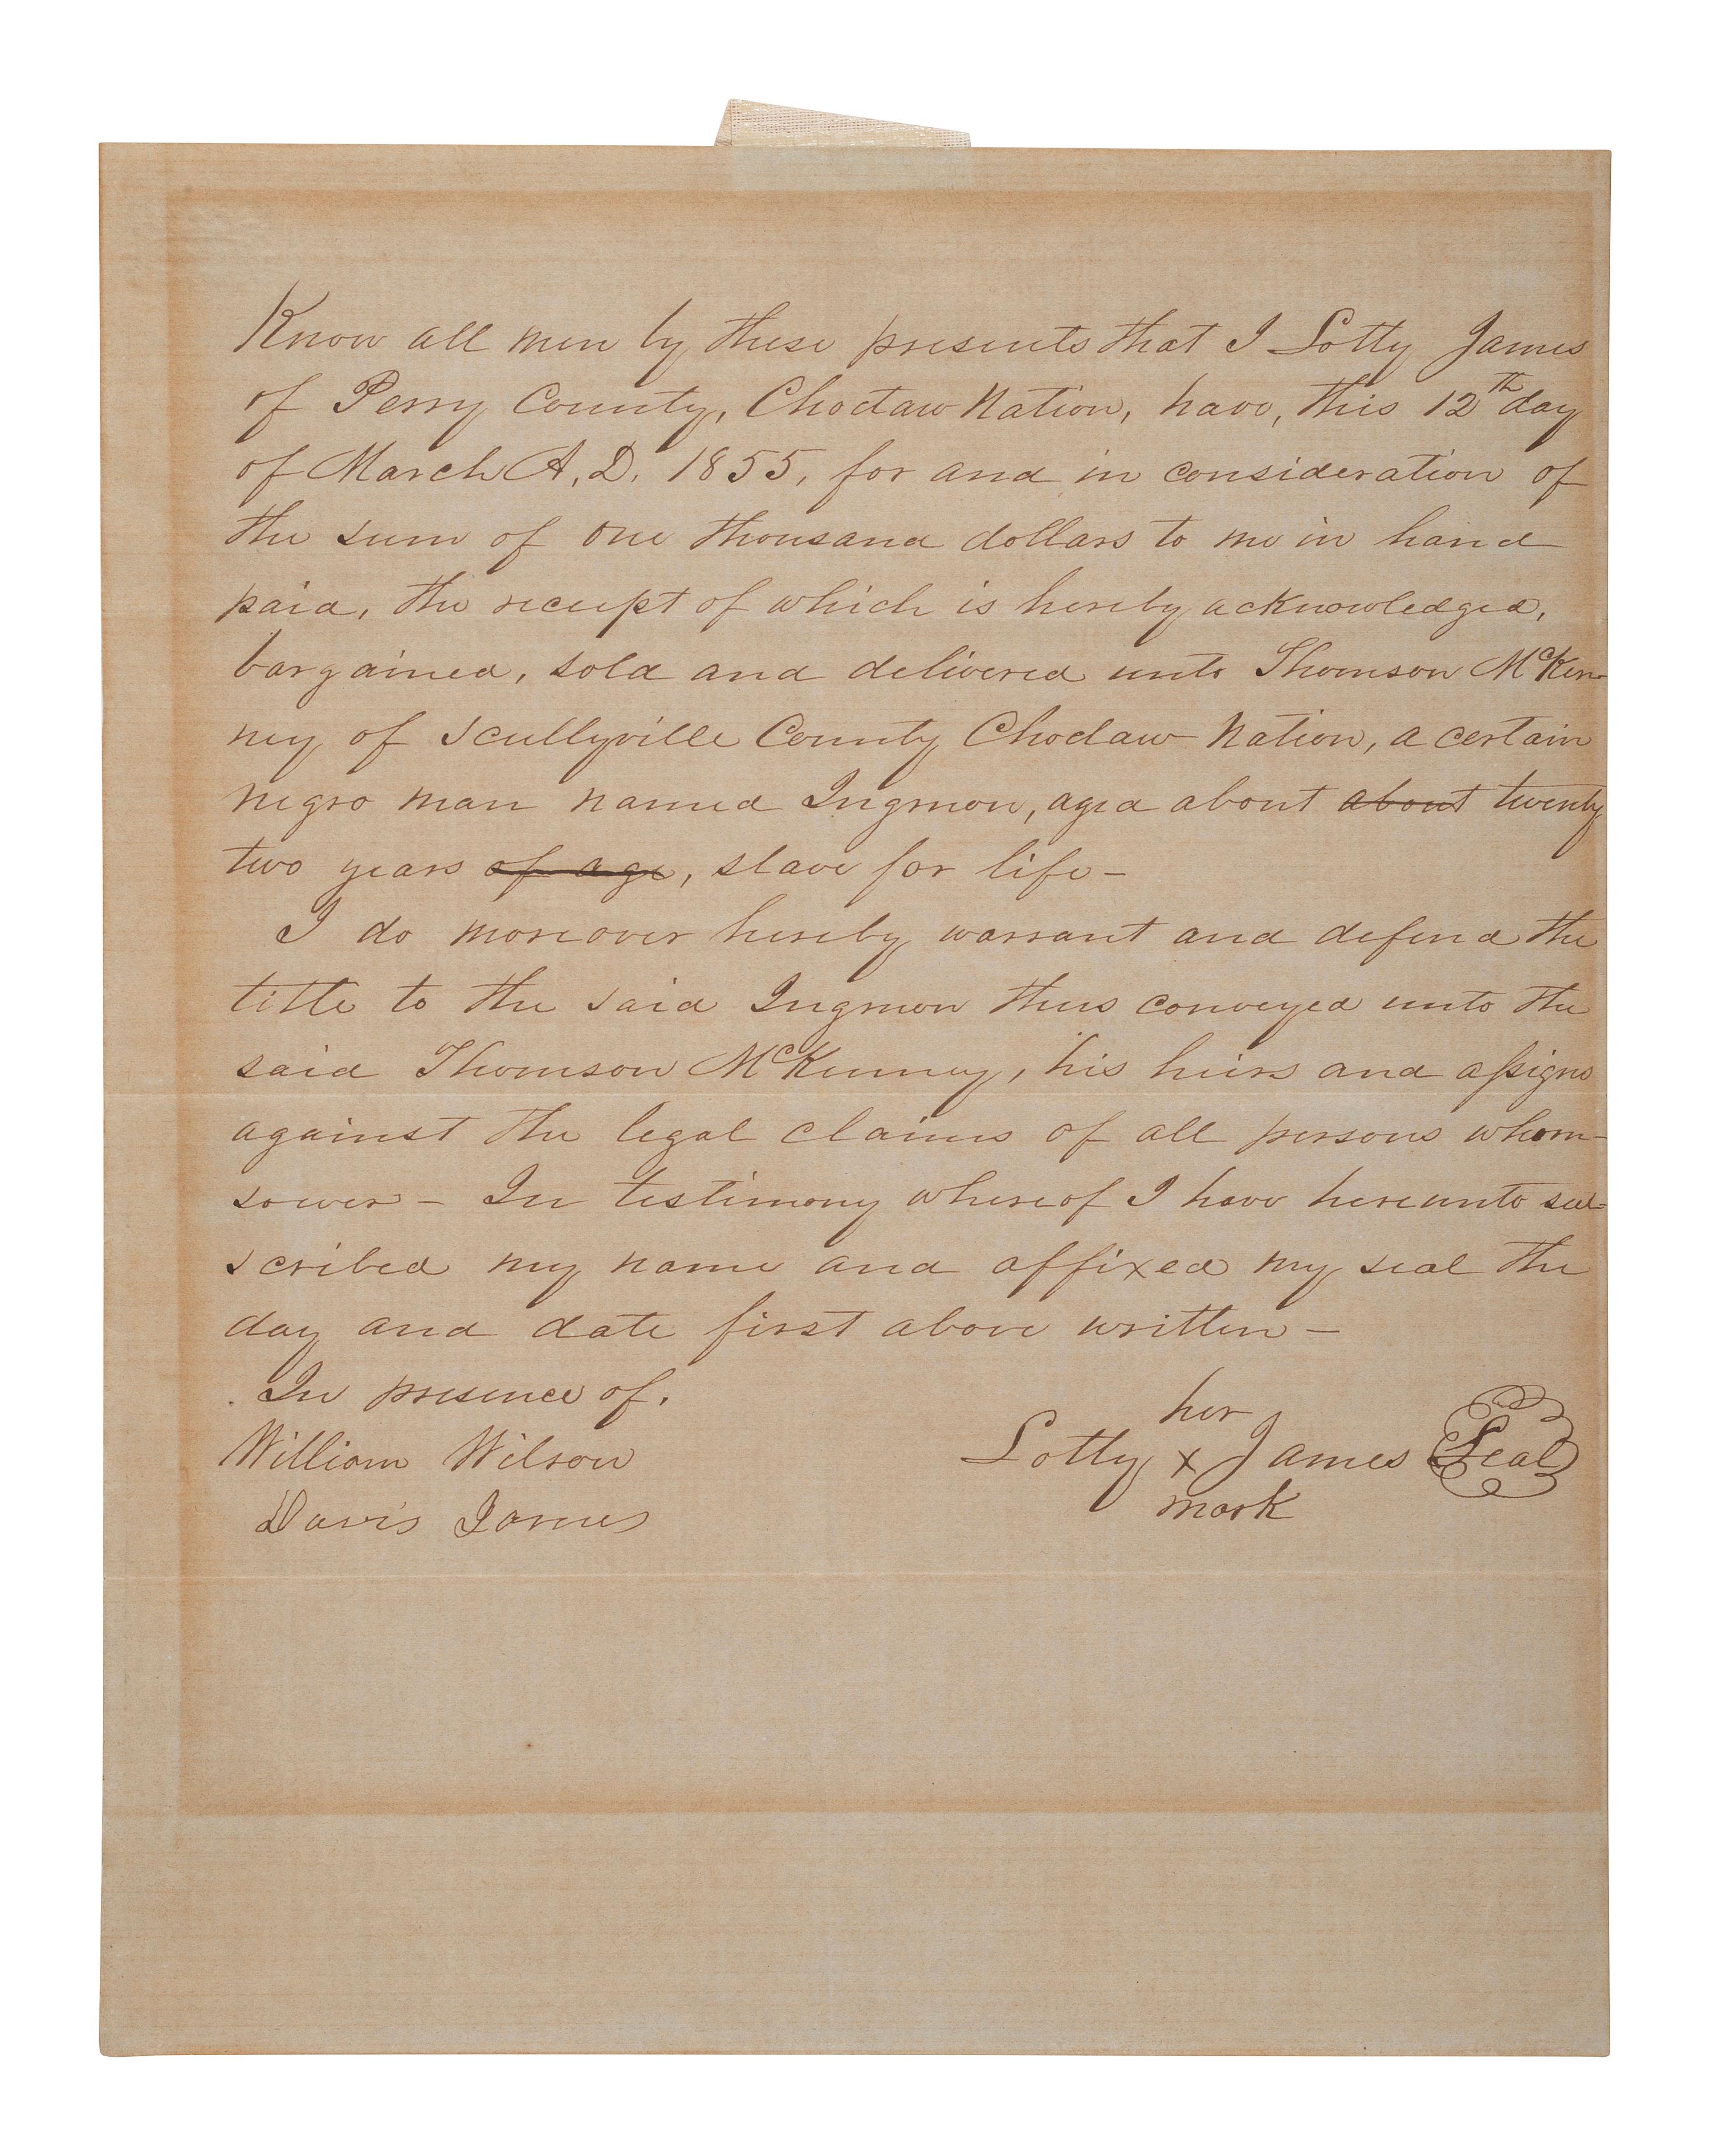 Know all men by these presents that I Lotty James
of Perry County, Choctaw Nation, have, this 12th day
of March A.D. 1855, for and in consideration of
the sum of one thousand dollars to me in hand
paid, the receipt of which is hereby acknowledged,
bargained, sold and delivered unto Thomson McKen-
ney of Scullyville County Choctaw Nation, a certain
negro man named Ingmon, aged about about twenty
two years of age, slave for life -
I do moreover hereby warrant and defend the
title to the said Ingmon thus conveyed unto the
said Thomson McKenney, his heirs and assigns
against the legal claims of all persons whom-
soever - In testimony whereof I have hereunto sub=
scribed my name and affixed my seal the
day and date first above written -
In presence of.
her
William Wilson
Lotty x James Seal
mark
Davis James